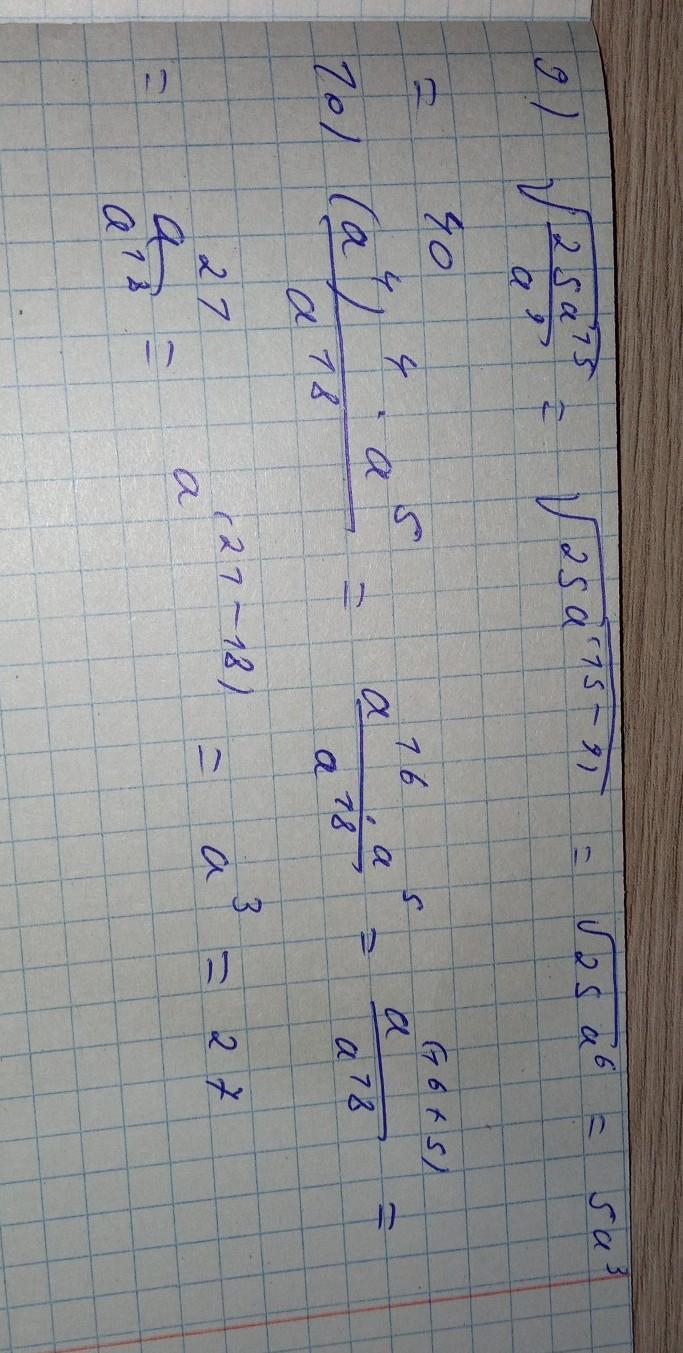 9) √(25a¹⁵/a⁹) = √(25a⁽¹⁵⁻⁹⁾) = √(25a⁶) = 5a³
= 40
10) (a⁴)⁴ · a⁵/a¹⁸ = a¹⁶ · a⁵/a¹⁸ = a⁽¹⁶⁺⁵⁾/a¹⁸ =
= a²¹/a¹⁸ = a⁽²¹⁻¹⁸⁾ = a³ = 27